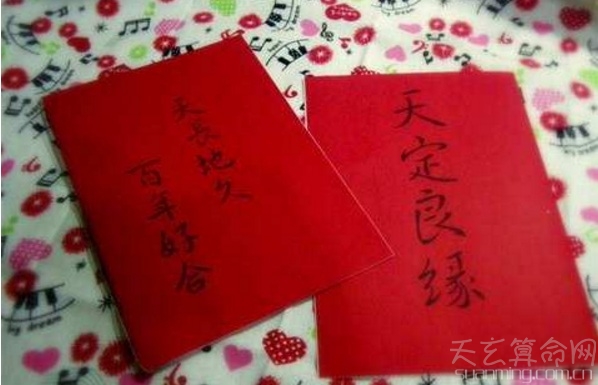 天長地久
百年好合
天定良缘
by dream
天玄算命网
suanming.com.cn